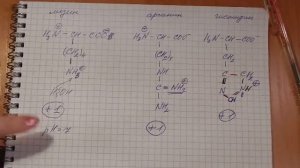 лизин аргинин гистидин
H₂N – CH – COO⊖ H₂N – CH – COO⁻ H₂N – CH – COO⁻
(CH₂)₄ (CH₂)₃ CH₂
NH₃⊕ NH C – CH
C = NH₂⊕ N NH
NH₂ CH
+1 +1
pH = 7